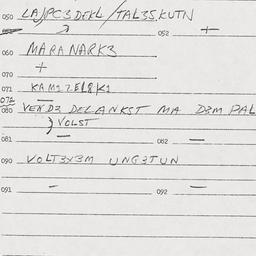 050 LAJPC3DEKL/TAL3SKUTN
052 +
060 MARANARK3
+
070
071 KAM1ZEL8K1
072 —
080 VEND3 DELANKST MA D3M PAL
} VOLST
081 — 082 —
090 VOLT3X3M UNG3TUN
091 - 092 —